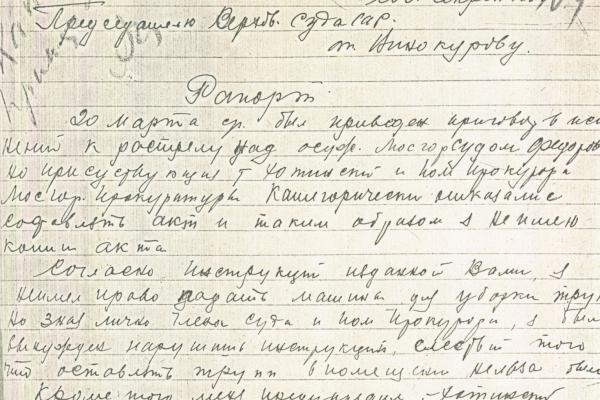 Председателю Верхов. Суда САР.
от Винокурову.
Рапорт
20 марта ср. был приведен приговор в исп
нений к расстрелу над осуж. Мосгорсудом Федоров
но присуствующия т Хотинский и пом Прокурора
Мосгор. Прокуратуры Категорически отказалис
составлять акт и таким образом я не имею
копии акта
Согласно инструкций изданной Вами, я
неимел право подать машина для уборки труп
Но зная лично члена суда и пом Прокурора, я был
вынужден нарушить инструкций, следствий того
что оставлять труп в помещении нельзя было
Кроме того меня Хотинский